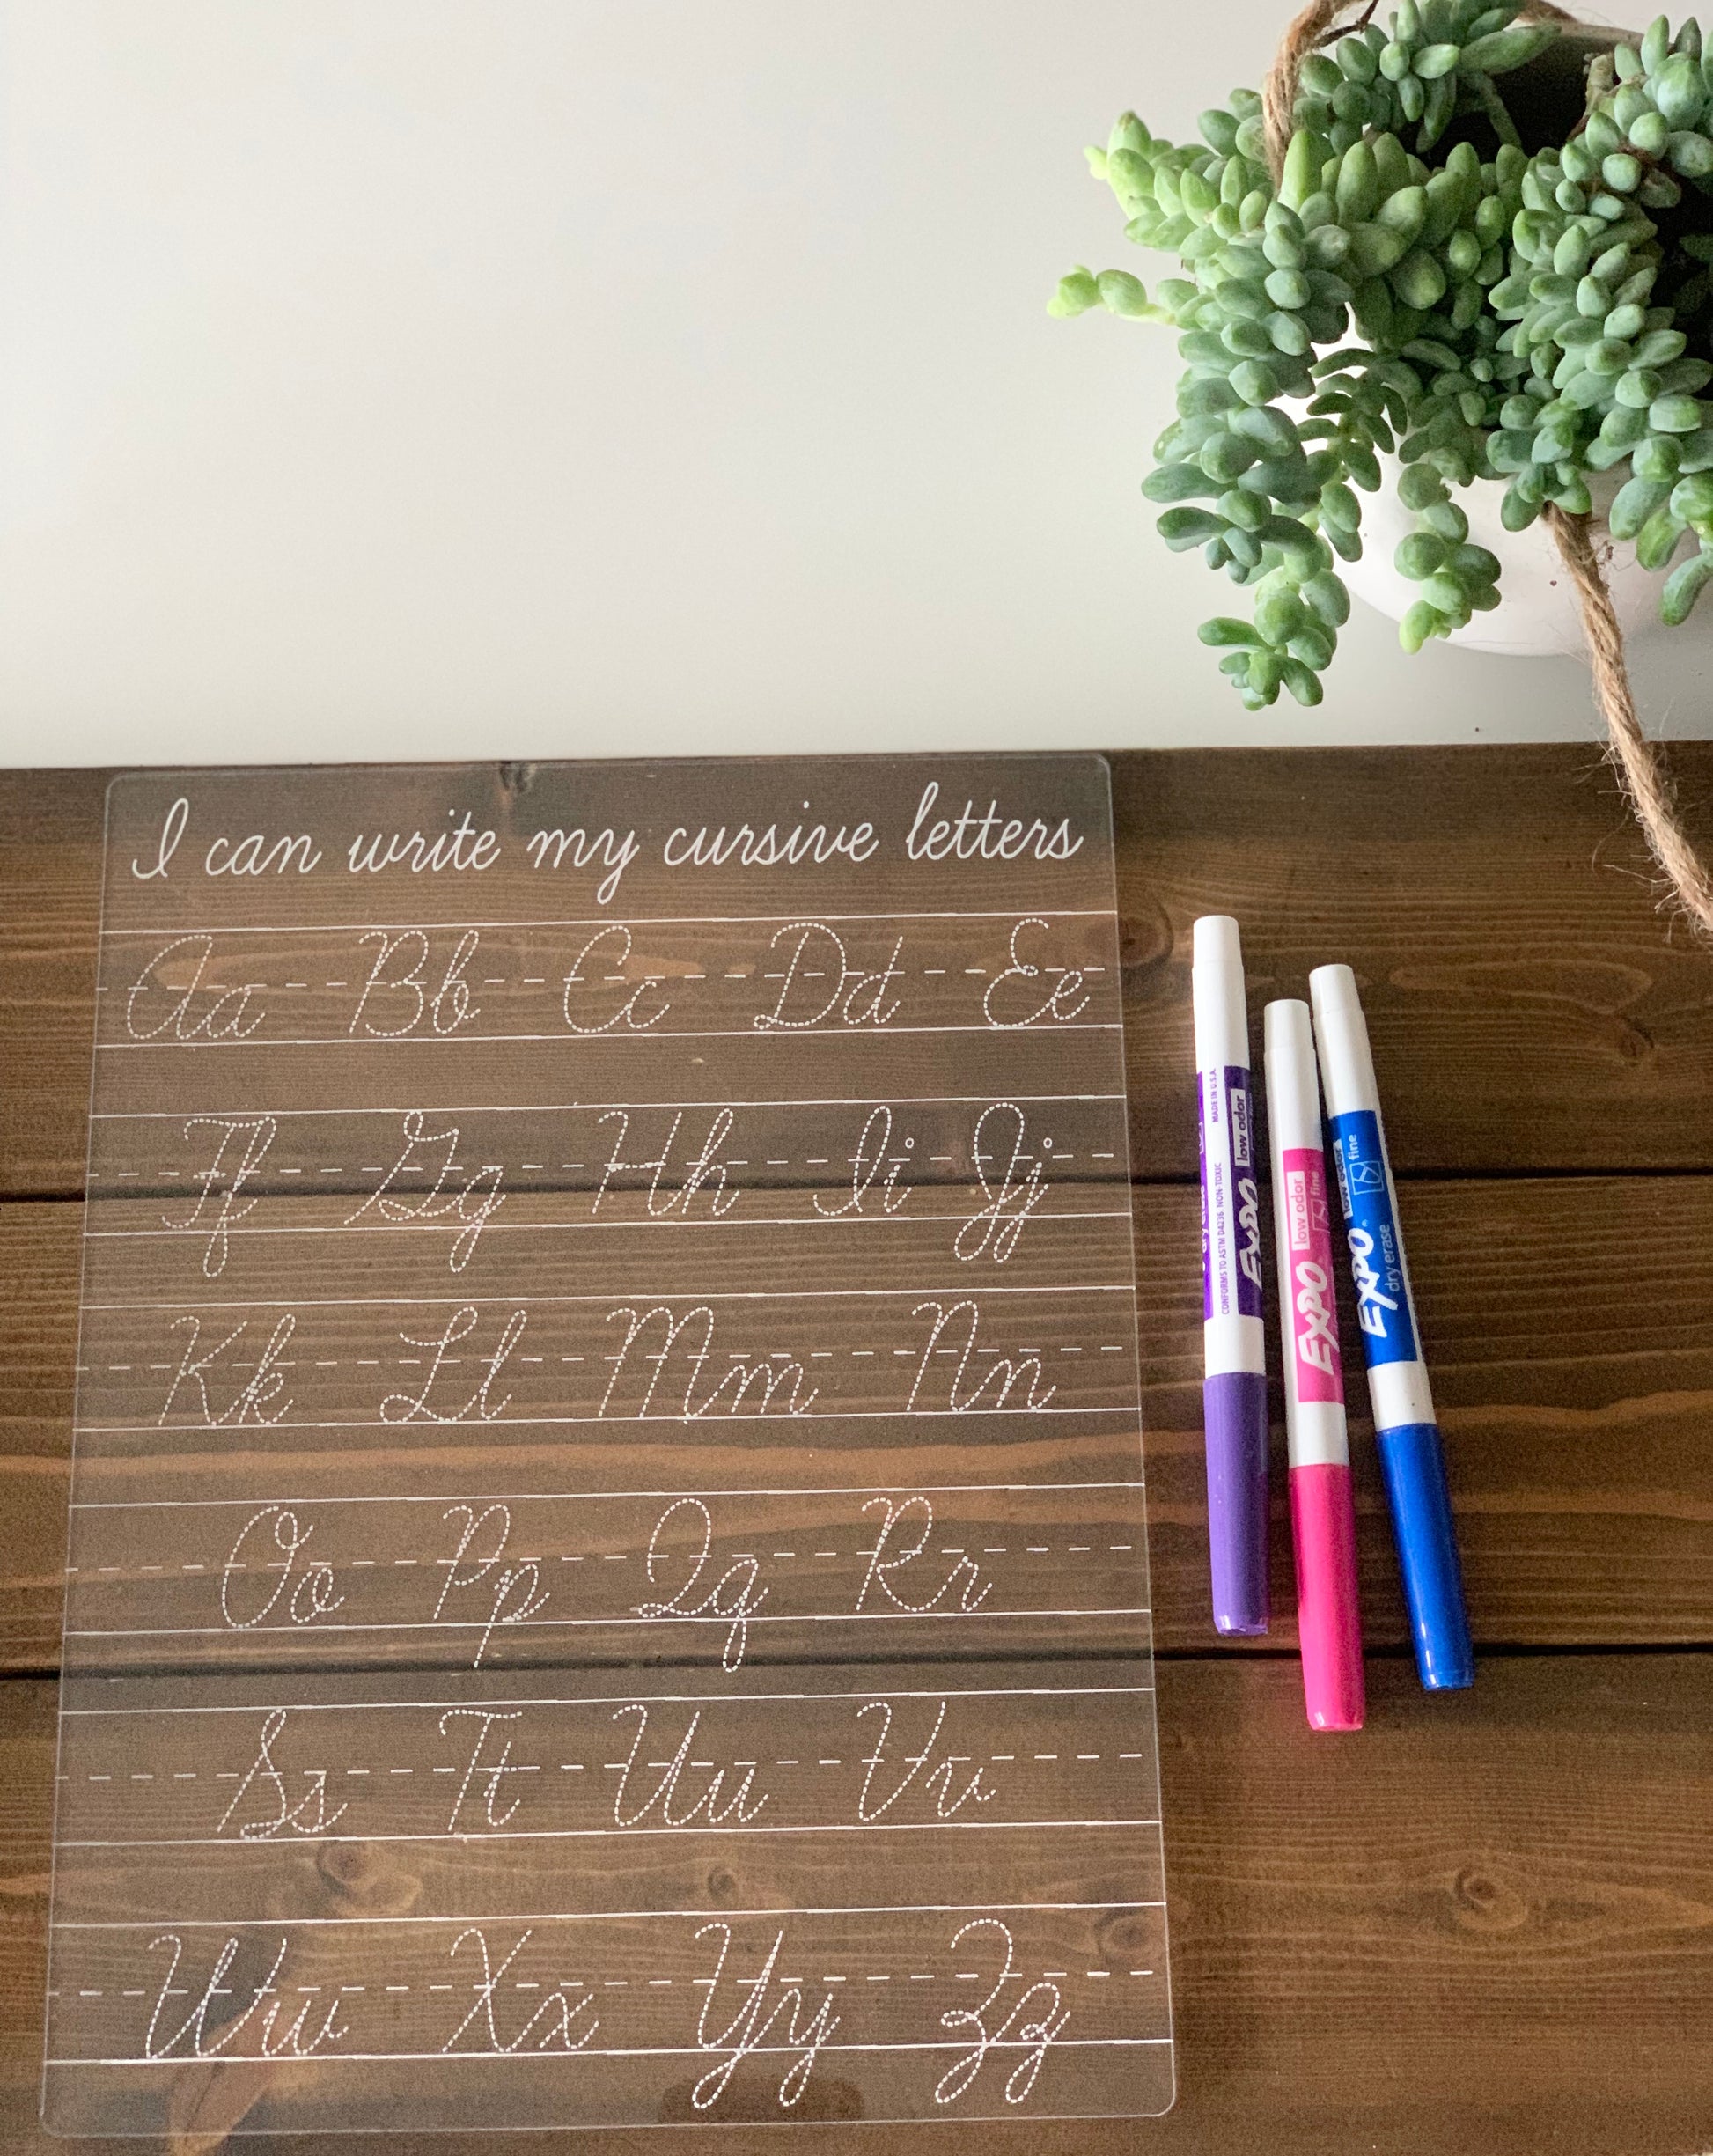 I can write my cursive letters
Aa Bb Cc Dd Ee
Ff Gg Hh Ii Jj
Kk Ll Mm Nn
Oo Pp Qq Rr
Ss Tt Uu Vv
Ww Xx Yy Zz
CONFORMS TO ASTM D4236 NON-TOXIC MADE IN U.S.A.
EXPO low odor
EXPO low odor
fine
EXPO low odor
dry erase fine